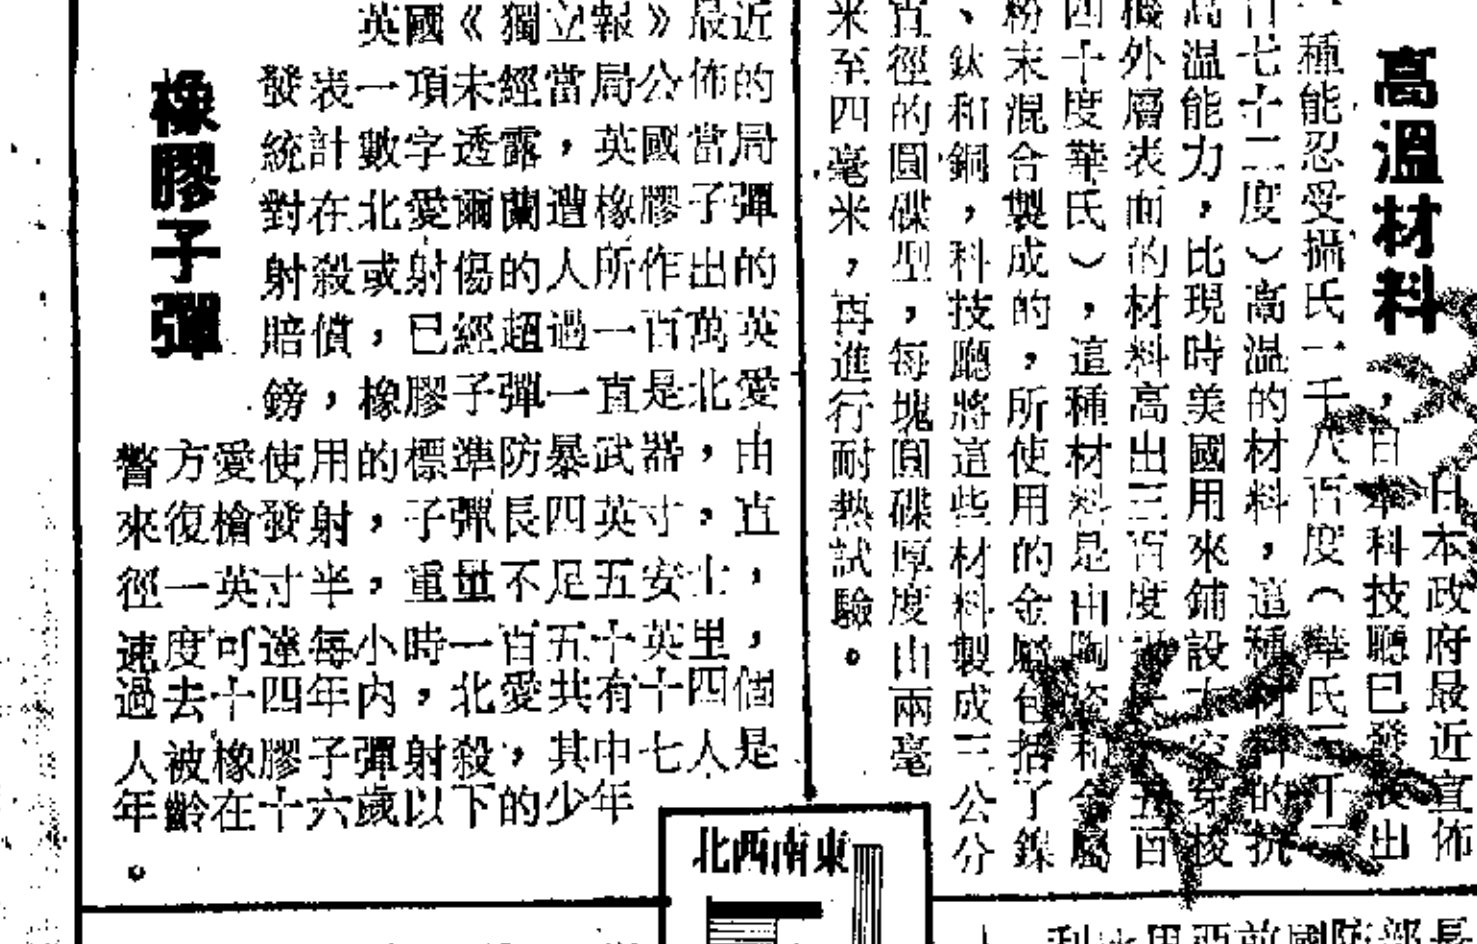 高溫材料
日本政府最近宣佈
，日本科技廳已發表出
一種能忍受攝氏一千八百度（華氏三千二
百七十二度）高溫的材料，這種材料的抗
高溫能力，比現時美國用來鋪設太空穿梭
機外層表面的材料高出三百度五百
四十度華氏），這種材料是由陶瓷和金屬
粉末混合製成的，所使用的金屬包括了鎳
、鈦和銅，科技廳將這些材料製成三公分
直徑的圓碟型，每塊圓碟厚度由兩毫
米至四毫米，再進行耐熱試驗。
橡膠子彈
英國《獨立報》最近
發表一項未經當局公佈的
統計數字透露，英國當局
對在北愛爾蘭遭橡膠子彈
射殺或射傷的人所作出的
賠償，已經超過一百萬英
鎊，橡膠子彈一直是北愛
警方愛使用的標準防暴武器，由
來復槍發射，子彈長四英寸，直
徑一英寸半，重量不足五安士，
速度可達每小時一百五十英里，
過去十四年內，北愛共有十四個
人被橡膠子彈射殺，其中七人是
年齡在十六歲以下的少年
。
東南西北